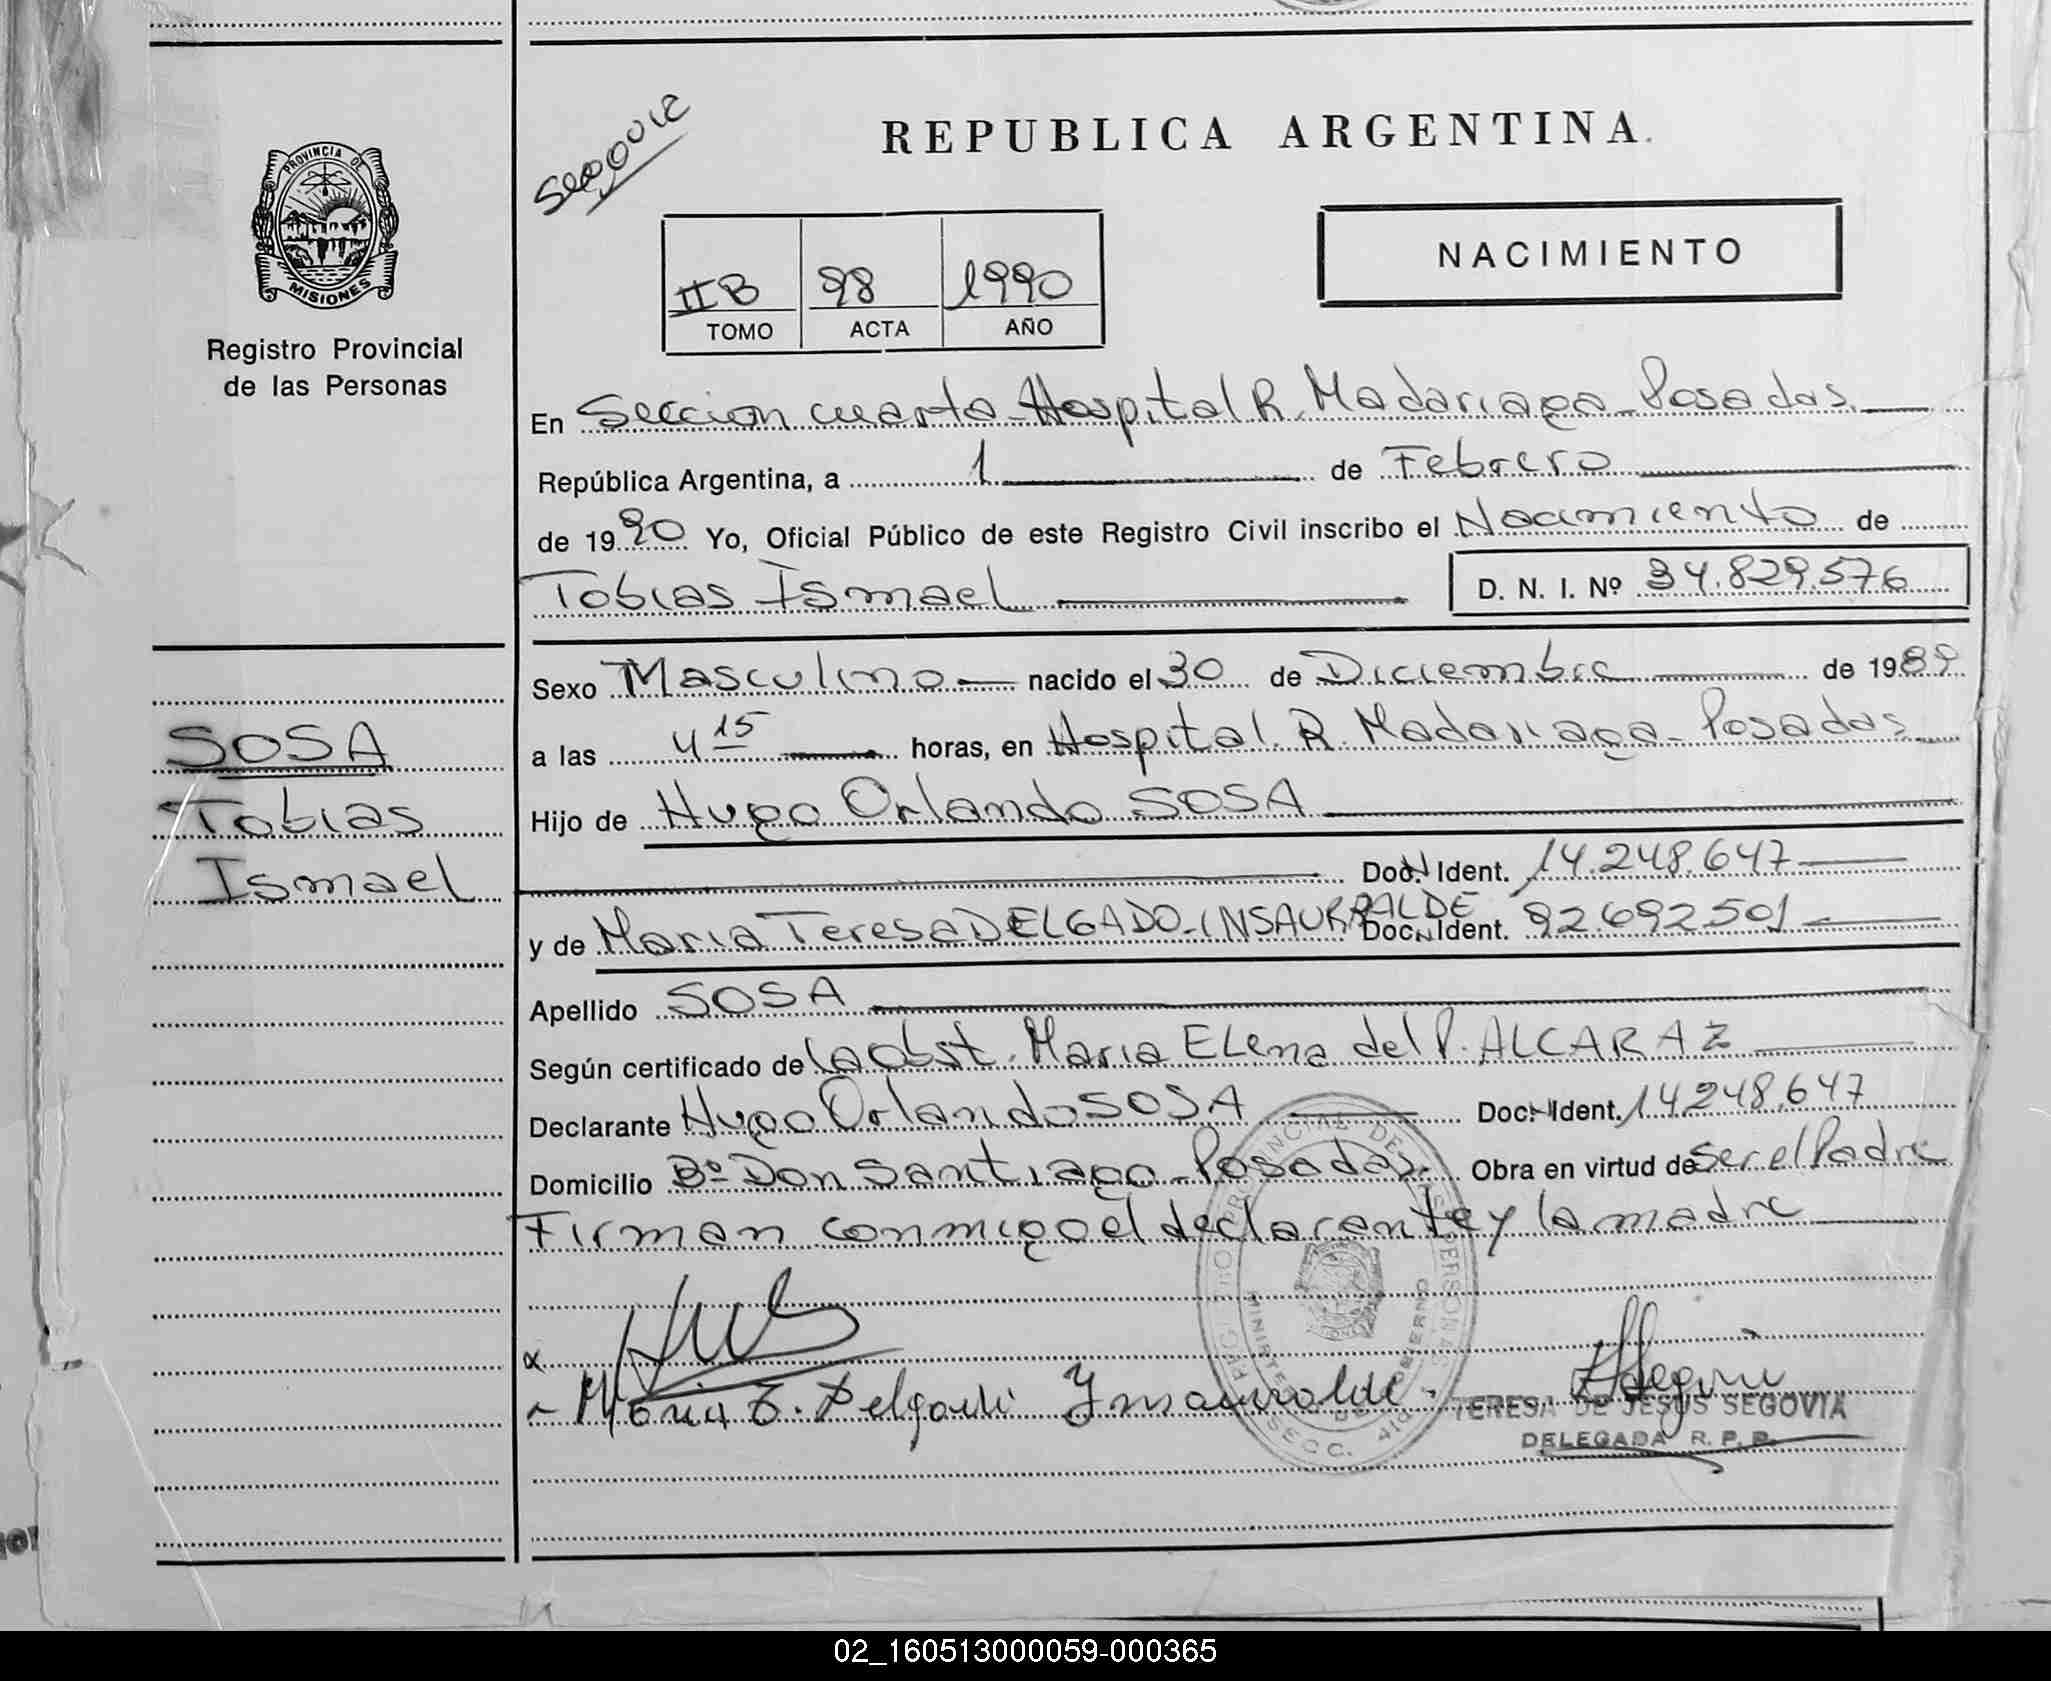 REPUBLICA ARGENTINA.
NACIMIENTO
PROVINCIA DE
MISIONES
Registro Provincial
de las Personas
IIB 98 1990
TOMO ACTA AÑO
En Seccion cuarta - Hospital R. Madariaga - Posadas.
República Argentina, a 1 de Febrero
de 1990 Yo, Oficial Público de este Registro Civil inscribo el Nacimiento de
Tobias Ismael D. N. I. Nº 34.829.576
Sexo Masculino nacido el 30 de Diciembre de 1989
a las 4 15 horas, en Hospital R. Madariaga - Posadas
SOSA
Tobias
Ismael
Hijo de Hugo Orlando SOSA
Doc. N Ident. 14.248.647
y de Maria Teresa DELGADO - INSAURRALDE Doc. N Ident. 92.692501
Apellido SOSA
Según certificado de la Obst. Maria Elena del P. ALCARAZ
Declarante Hugo Orlando SOSA Doc. N Ident. 14248.647
Domicilio Bº Don Santiago - Posadas. Obra en virtud de Ser el Padre
Firman conmigo el declarante y la madre
Maria T. Delgado Insaurralde
TERESA DE JESUS SEGOVIA
DELEGADA R. P. P.
REGISTRO PROVINCIAL DE LAS PERSONAS
MINISTERIO DE GOBIERNO
SECC. 4ta
02_160513000059-000365